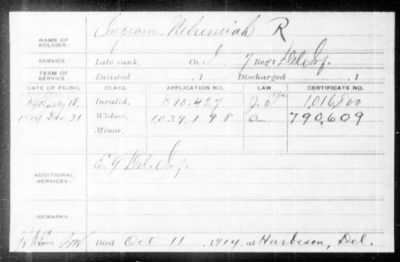 Ingram, Nehemiah R
NAME OF SOLDIER:
SERVICE: Late rank, Co. I, 7 Reg't Del. Inf.
TERM OF SERVICE: Enlisted , 1 Discharged , 1
DATE OF FILING. CLASS. APPLICATION NO. LAW. CERTIFICATE NO.
July 18, Invalid, 895.427 1,016,800
1914 Dec 31 Widow, 1,039,198 a 790,609
Minor,
ADDITIONAL SERVICES: E. 9 Del. Inf.
REMARKS:
Died Oct 11, 1914, at Harbeson, Del.